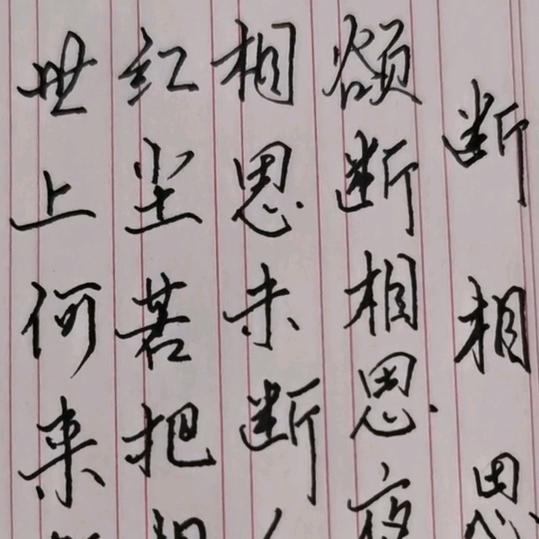 断相思
欲断相思夜
相思未断
红尘若把
世上何来